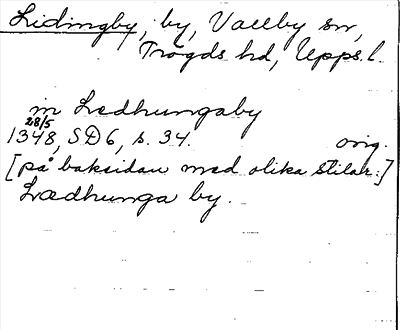 Lidingby, by, Vallby sn,
Trögds hd, Upps. l.
in Lædhungaby
28/5
1348, SD6, s. 34. orig.
[på baksidan med olika stilar:]
Lædhunga by.